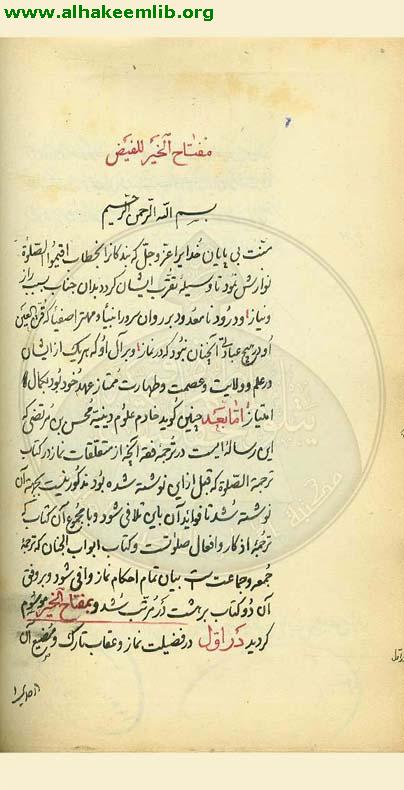 www.alhakeemlib.org
مفتاح الخير للفيض
بسم الله الرحمن الرحيم
منّت بی پایان خدایرا عزّ و جلّ که بندکانرا بخطاب اقیموا الصلوة
نوازش نمود تا وسیلۀ تقرب ایشان کردد بدان جناب بسبب راز
و نیاز و درود نامعدود بر روان سرور انبیا و مهتر اصفیا که قرة العین
او در هیچ عبادتی آنچنان نبود که در نماز و بر آل او که هر یک از ایشان
در علم و ولایت و عصمت و طهارت ممتاز عهد خود بود بکمال
امتیاز اما بعد چنین کوید خادم علوم دینیه محسن بن مرتضی که
این رساله ایست در ترجمۀ فقه آنچه از متعلقات نماز در کتاب
ترجمة الصلوة که قبل از این نوشته شده بود مذکور نیست بجهة آن
نوشته شد تا فواید آن باین تلافی شود و با مجموع آن کتاب که
ترجمۀ اذکار و افعال صلوتست و کتاب ابواب الجنان که ترجمۀ
جمعه و جماعت است بیان تمام احکام نماز وافی شود و بر وفق
آن دو کتاب بر هشت در مرتب شد و بمفتاح الخیر موسوم
کردید در اوّل در فضیلت نماز و عقاب تارک و مضیع آن